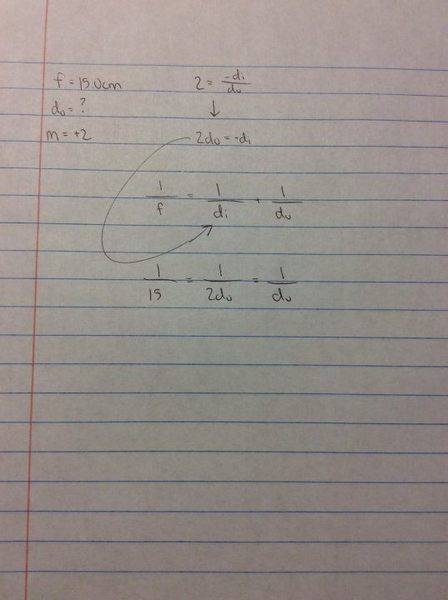 f = 15.0cm
do = ?
m = +2
2 = -di/do
↓
2do = -di
1/f = 1/di + 1/do
1/15 = 1/2do = 1/do